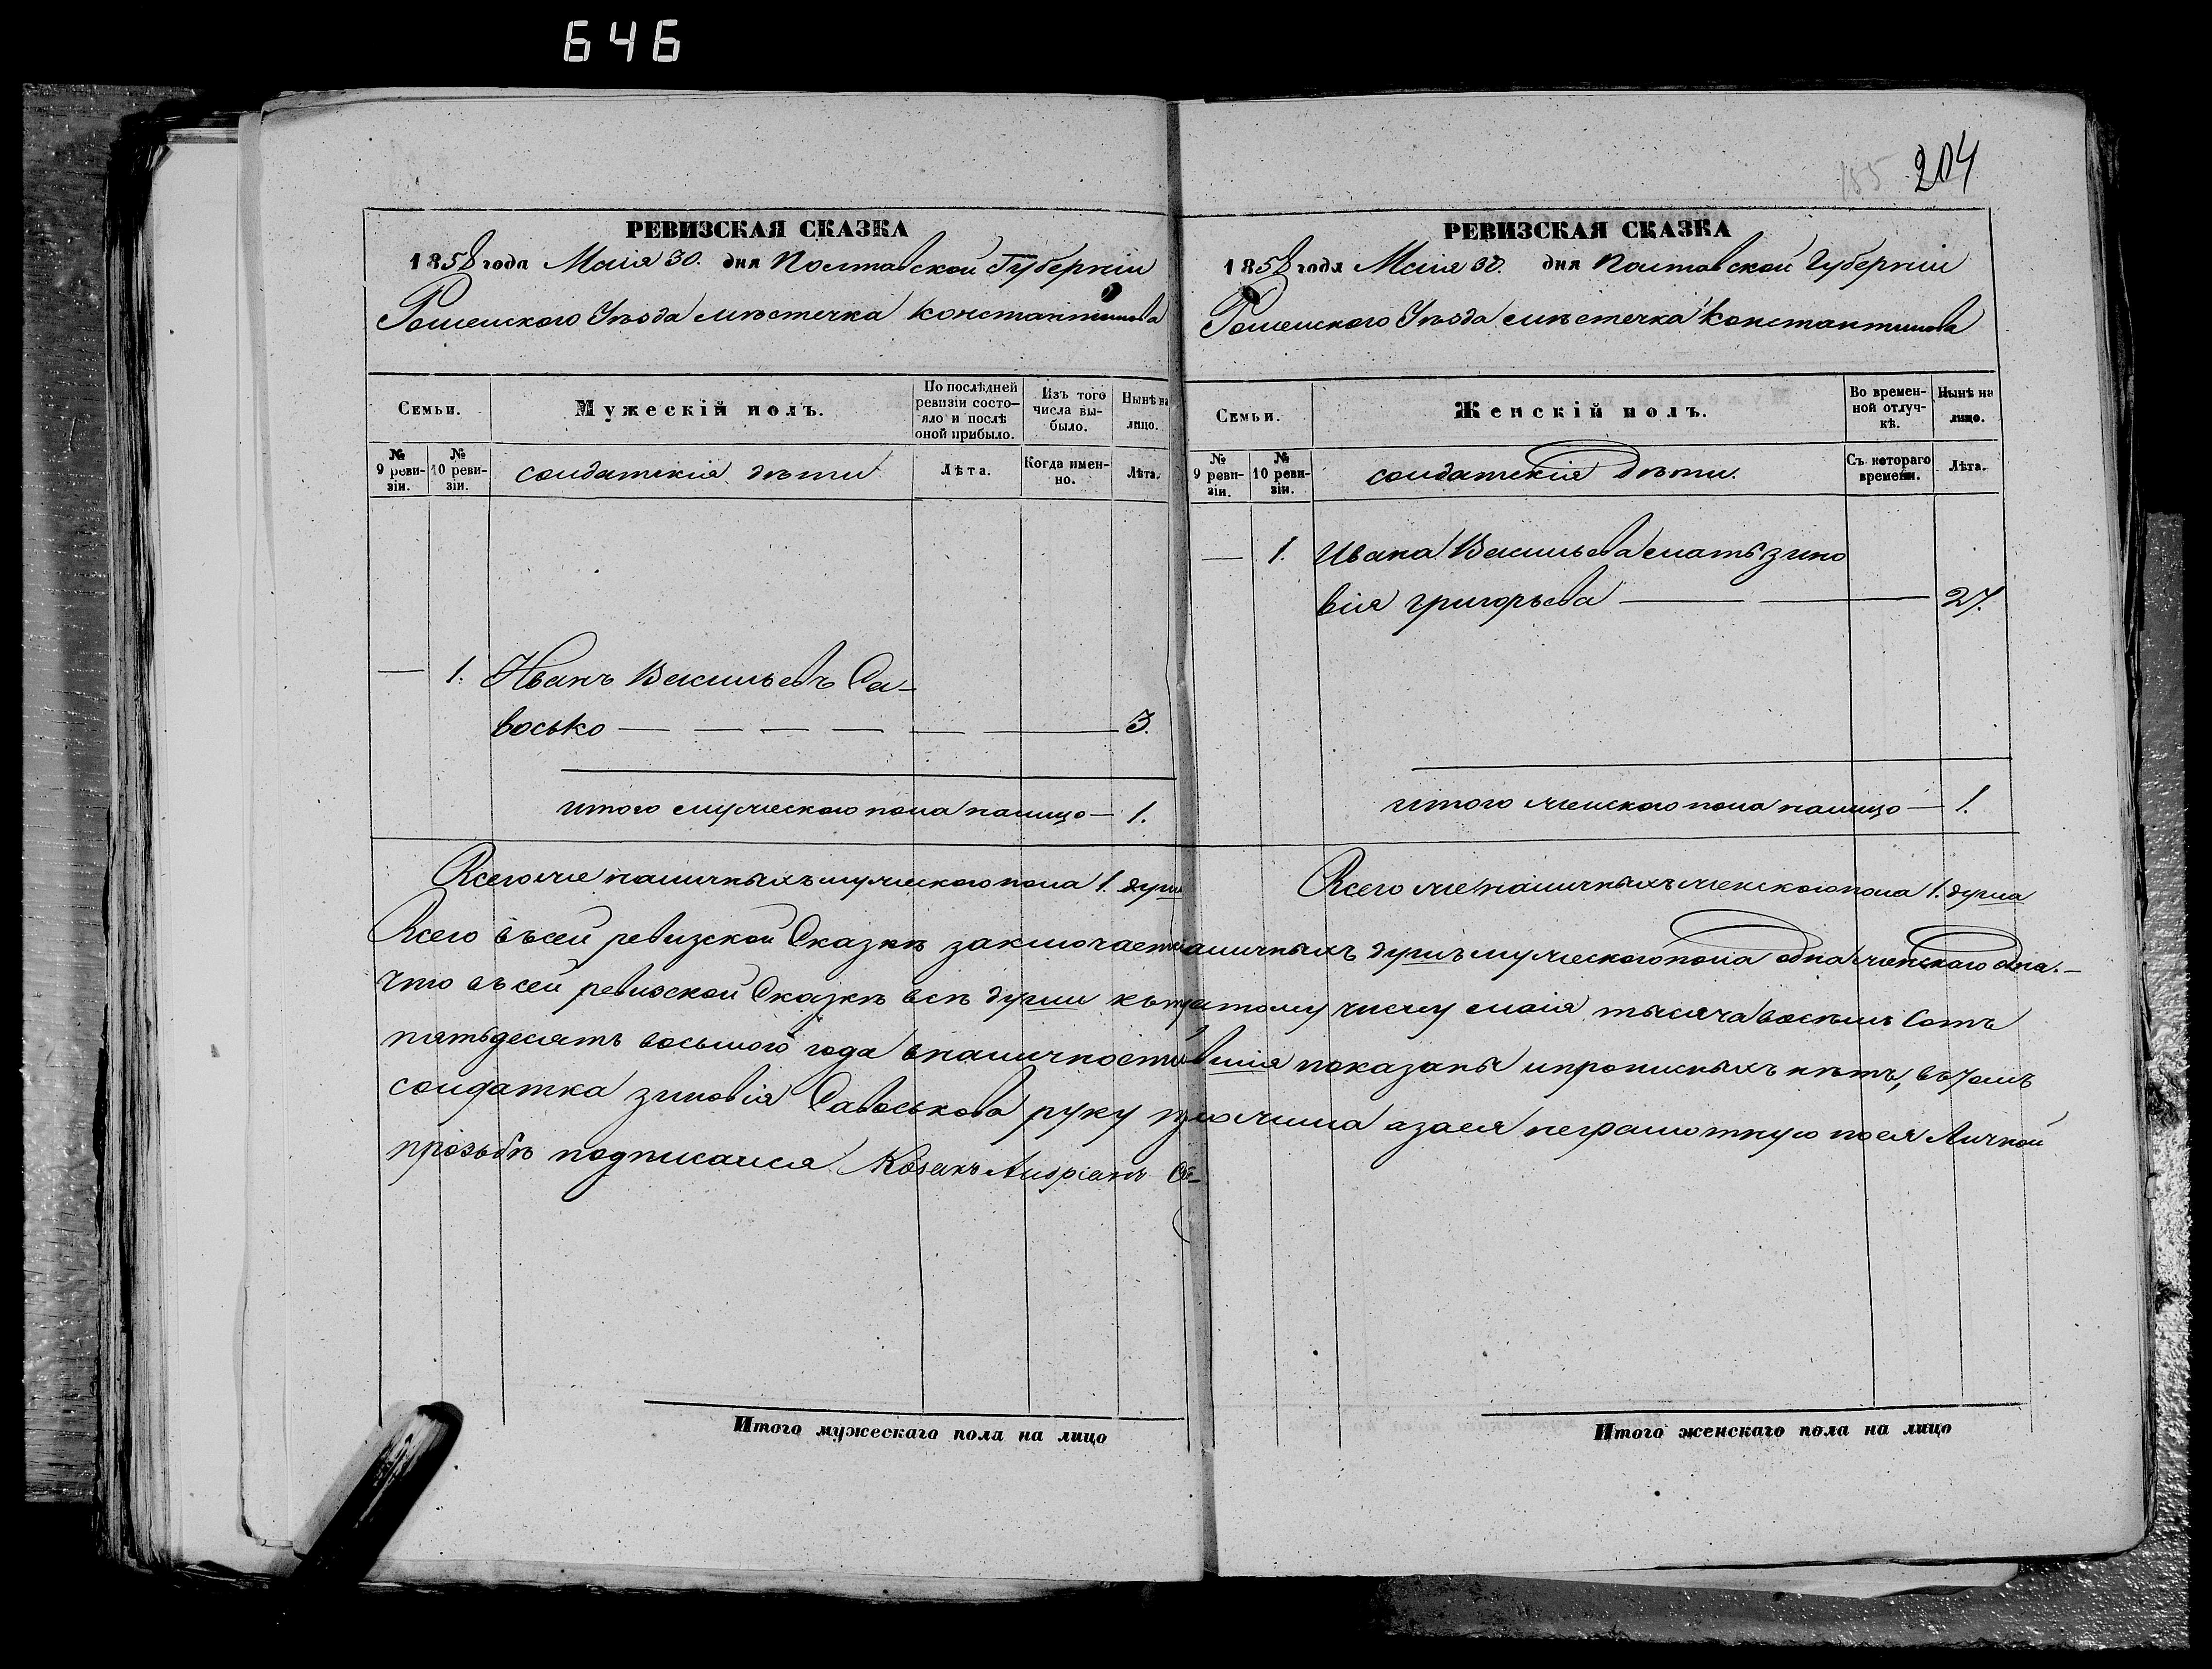 646
155 204
РЕВИЗСКАЯ СКАЗКА
1858 года Маія 30. дня Полтавской Губерніи
Роменского Уѣзда мѣстечка Константинова
Семьи.
Мужескій полъ.
По послѣдней ревизіи состояло и послѣ оной прибыло.
Изъ того числа выбыло.
Нынѣ на лицо.
№ 9 ревизіи.
№ 10 ревизіи.
солдатскія дѣти
Лѣта.
Когда именно.
Лѣта.
— 1. Иванъ Васильевъ Са-
восько — — — — — — 3.
итого мужеского пола налицо — 1.
РЕВИЗСКАЯ СКАЗКА
1858 года Маія 30. дня Полтавской Губерніи
Роменского Уѣзда мѣстечка Константинова
Семьи.
Женскій полъ.
Во временной отлучкѣ.
Нынѣ на лицо.
№ 9 ревизіи.
№ 10 ревизіи.
солдатскія дѣти.
Съ котораго времени.
Лѣта.
— 1. Ивана Васильева мать зино
вія григорьева — — — 27.
итого женского пола налицо — 1.
Всего же наличныхъ мужеского пола 1. душа
Всего же наличныхъ женского пола 1. душа
Всего въсей ревизской Сказкѣ заключается наличныхъ душъ мужеского пола одна женского одна. —
Что въсей ревизской Сказкѣ всѣ души къ тому числу маія тысяча восемь Сотъ
пятьдесятъ восьмого года вналичности показаны ипрописныхъ нѣтъ, въ томъ
солдатка зиновія Савоськова руку приложила азаея неграмотную поея Личной
прозьбѣ подписался Козакъ Андріанъ
Итого мужескаго пола на лицо
Итого женскаго пола на лицо